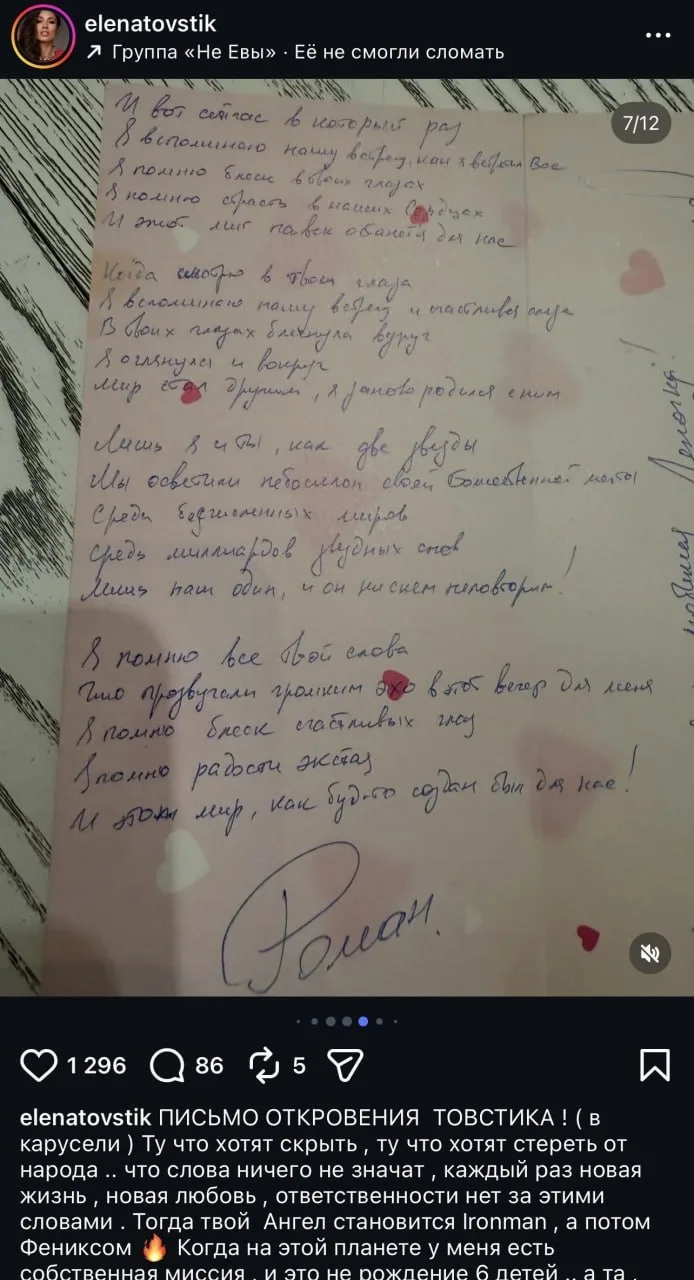 elenatovstik
Группа «Не Евы» · Её не смогли сломать
7/12
И вот сейчас в который раз
Я вспоминаю нашу встречу, как я встретил Вас
Я помню блеск в твоих глазах
Я помню страсть в наших Сердцах
И этот миг навек останется для нас
Когда смотрю в твои глаза
Я вспоминаю нашу встречу и счастливая слеза
В твоих глазах блеснула вдруг
Я оглянулся и вокруг
Мир стал другим, я заново родился с ним
Лишь я и ты, как две звезды
Мы осветили небосклон своей Божественной мечты
Средь бесчисленных миров
Средь миллиардов звёздных снов
Лишь наш один, и он ни с кем неповторим!
Я помню все твои слова
Что прозвучали громким эхо в тот вечер для меня
Я помню блеск счастливых глаз
Я помню радости экстаз
И этот мир, как будто создан был для нас!
Роман.
1 296 86 5
elenatovstik ПИСЬМО ОТКРОВЕНИЯ ТОВСТИКА ! ( в
карусели ) Ту что хотят скрыть , ту что хотят стереть от
народа .. что слова ничего не значат , каждый раз новая
жизнь , новая любовь , ответственности нет за этими
словами . Тогда твой Ангел становится Ironman , а потом
Фениксом 🔥 Когда на этой планете у меня есть
собственная миссия , и это не рождение 6 детей .. а та ,